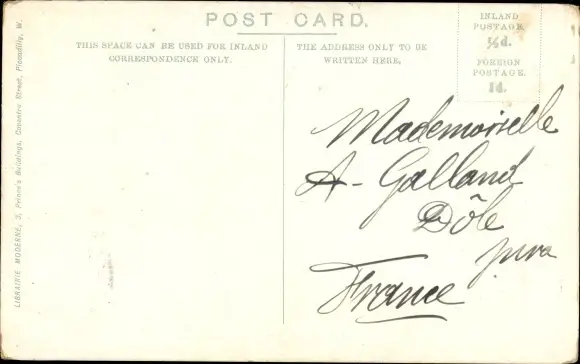 POST CARD.
THIS SPACE CAN BE USED FOR INLAND
CORRESPONDENCE ONLY.
THE ADDRESS ONLY TO BE
WRITTEN HERE.
INLAND
POSTAGE
½d.
FOREIGN
POSTAGE.
1d.
Mademoiselle
A - Galland
Dôle
Jura
France
LIBRAIRIE MODERNE, 3, Prince's Buildings, Coventry Street, Piccadilly, W.